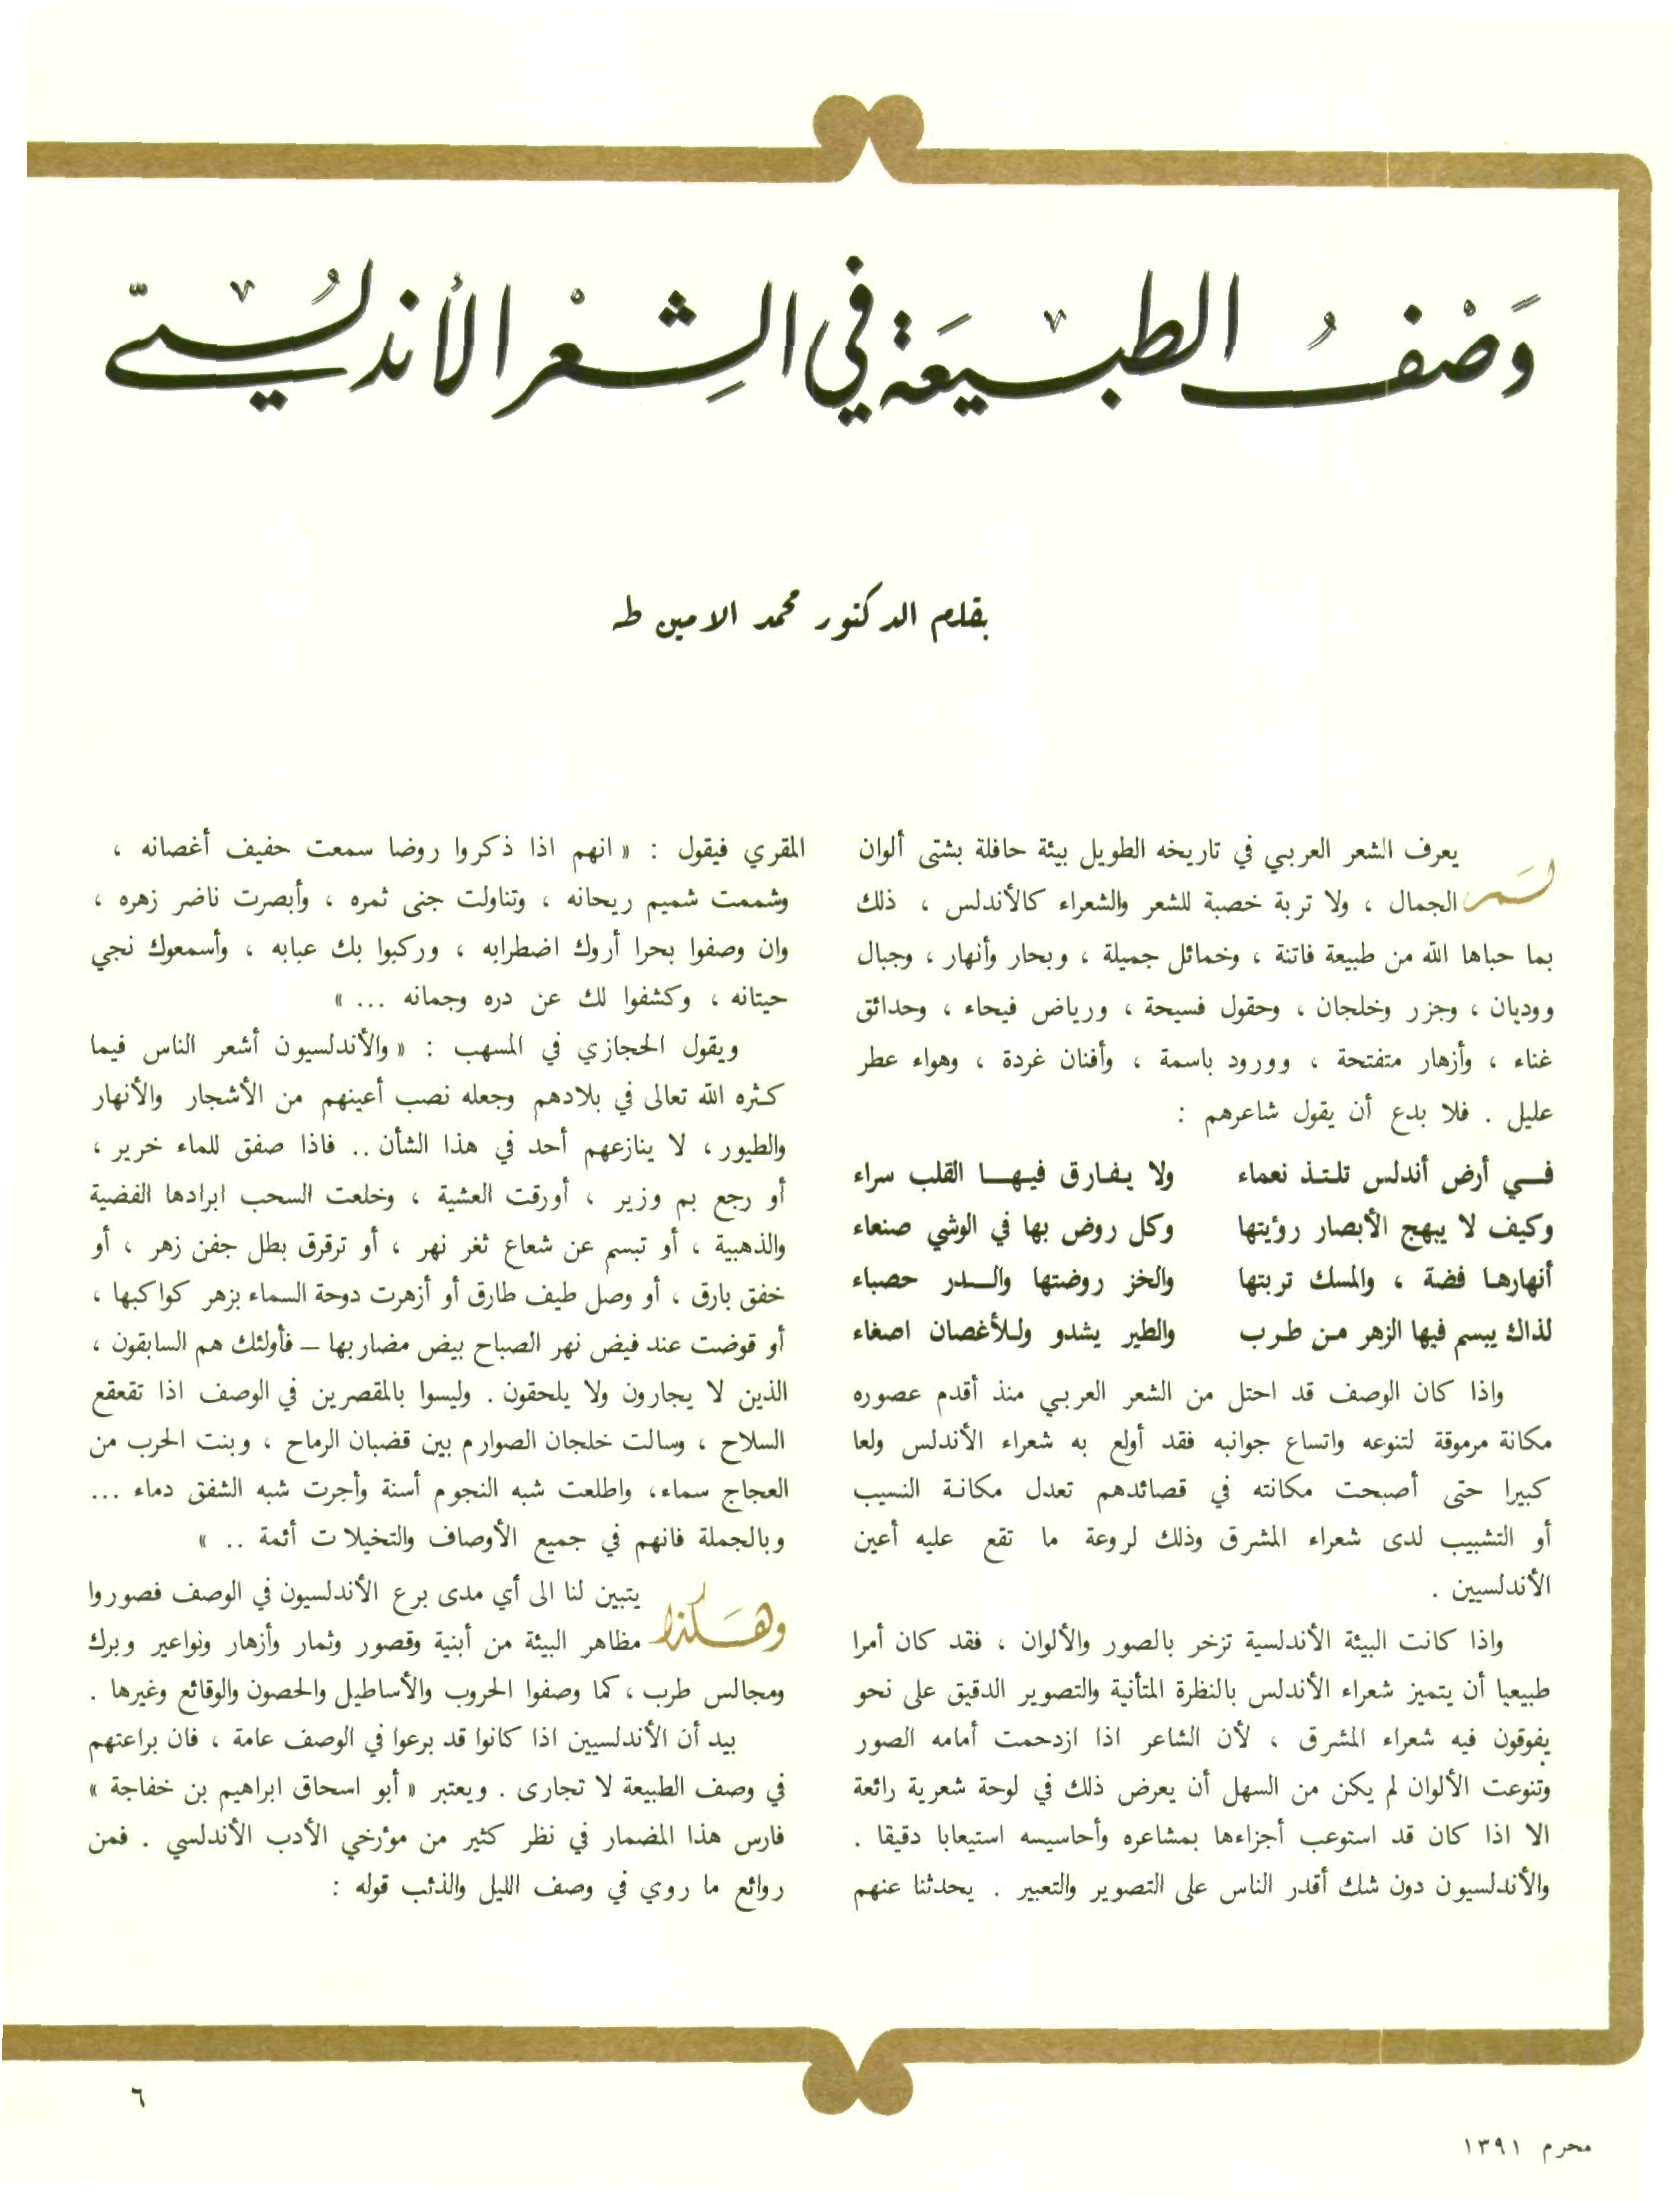 وَصْفُ الطبيعَة في الشِعْر الأندلُسيّ
بقلم الدكتور محمد الامين طه
لـم يعرف الشعر العربي في تاريخه الطويل بيئة حافلة بشتى ألوان
الجمال ، ولا تربة خصبة للشعر والشعراء كالأندلس ، ذلك
بما حباها الله من طبيعة فاتنة ، وخمائل جميلة ، وبحار وأنهار ، وجبال
ووديان ، وجزر وخلجان ، وحقول فسيحة ، ورياض فيحاء ، وحدائق
غناء ، وأزهار متفتحة ، وورود باسمة ، وأفنان غردة ، وهواء عطر
عليل . فلا بدع أن يقول شاعرهم :
فـي أرض أندلس تلتـذ نعماء ولا يـفـارق فيـهـا القلب سراء
وكيف لا يبهج الأبصار رؤيتها وكل روض بها في الوشي صنعاء
أنهارهـا فضة ، والمسك تربتها والخز روضتها والـدر حصباء
لذاك يبسم فيها الزهر مـن طـرب والطير يشدو ولـلأغصان اصغاء
واذا كان الوصف قد احتل من الشعر العربي منذ أقدم عصوره
مكانة مرموقة لتنوعه واتساع جوانبه فقد أولع به شعراء الأندلس ولعا
كبيرا حتى أصبحت مكانته في قصائدهم تعدل مكانـة النسيب
أو التشبيب لدى شعراء المشرق وذلك لروعة ما تقع عليه أعين
الأندلسيين .
واذا كانت البيئة الأندلسية تزخر بالصور والألوان ، فقد كان أمرا
طبيعيا أن يتميز شعراء الأندلس بالنظرة المتأنية والتصوير الدقيق على نحو
يفوقون فيه شعراء المشرق ، لأن الشاعر اذا ازدحمت أمامه الصور
وتنوعت الألوان لم يكن من السهل أن يعرض ذلك في لوحة شعرية رائعة
الا اذا كان قد استوعب أجزاءها بمشاعره وأحاسيسه استيعابا دقيقا .
والأندلسيون دون شك أقدر الناس على التصوير والتعبير . يحدثنا عنهم
المقري فيقول : « انهم اذا ذكروا روضا سمعت حفيف أغصانه ،
وشممت شميم ريحانه ، وتناولت جنى ثمره ، وأبصرت ناضر زهره ،
وان وصفوا بحرا أروك اضطرابه ، وركبوا بك عبابه ، وأسمعوك نجي
حيتانه ، وكشفوا لك عن دره وجمانه ... »
ويقول الحجازي في المسهب : « والأندلسيون أشعر الناس فيما
كثره الله تعالى في بلادهم وجعله نصب أعينهم من الأشجار والأنهار
والطيور ، لا ينازعهم أحد في هذا الشأن .. فاذا صفق للماء خرير ،
أو رجع بم وزير ، أورقت العشية ، وخلعت السحب ابرادها الفضية
والذهبية ، أو تبسم عن شعاع ثغر نهر ، أو ترقرق بطل جفن زهر ، أو
خفق بارق ، أو وصل طيف طارق أو أزهرت دوحة السماء بزهر كواكبها ،
أو قوضت عند فيض نهر الصباح بيض مضاربها – فأولئك هم السابقون ،
الذين لا يجارون ولا يلحقون . وليسوا بالمقصرين في الوصف اذا تقعقع
السلاح ، وسالت خلجان الصوارم بين قضبان الرماح ، وبنت الحرب من
العجاج سماء، واطلعت شبه النجوم أسنة وأجرت شبه الشفق دماء ...
وبالجملة فانهم في جميع الأوصاف والتخيلات أئمة .. »
وهـَكذا يتبين لنا الى أي مدى برع الأندلسيون في الوصف فصوروا
مظاهر البيئة من أبنية وقصور وثمار وأزهار ونواعير وبرك
ومجالس طرب ، كما وصفوا الحروب والأساطيل والحصون والوقائع وغيرها .
بيد أن الأندلسيين اذا كانوا قد برعوا في الوصف عامة ، فان براعتهم
في وصف الطبيعة لا تجارى . ويعتبر « أبو اسحاق ابراهيم بن خفاجة »
فارس هذا المضمار في نظر كثير من مؤرخي الأدب الأندلسي . فمن
روائع ما روي في وصف الليل والذئب قوله :
٦
محرم ١٣٩١